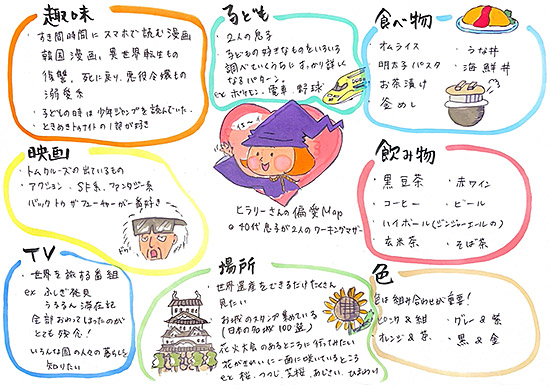 趣味
・すき間時間にスマホで読む漫画
韓国漫画、異世界転生もの
復讐、死に戻り、悪役令嬢もの
溺愛系
・子どもの時は少年ジャンプを読んでいた。
ときめきトゥナイトの1部が好き
子ども
・2人の息子
・子どもの好きなものをいろいろ
調べていくうちにすっかり詳しく
なるパターン。
ex ポケモン、電車、野球
食べ物
・オムライス
・うな丼
・明太子パスタ
・海鮮丼
・お茶漬け
・釜めし
映画
・トム・クルーズの出ているもの
・アクション、SF系、ファンタジー系
・バック トゥ ザ フューチャーが一番好き
ヒラリーさんの偏愛Map
@ 40代 息子が2人のワーキングマザー
飲み物
・黒豆茶
・赤ワイン
・コーヒー
・ビール
・ハイボール(ジンジャーエールの)
・玄米茶
・そば茶
TV
・世界を旅する番組
ex ふしぎ発見
うるるん滞在記
全部おわってしまったのが
とても残念!
・いろんな国の人々の暮らしを
知りたい
場所
・世界遺産をできるだけたくさん
見たい
・お城のスタンプ集めている
(日本の名城100選)
・花火大会のあるところに行ってみたい
・花がきれいに一面に咲いているところ
ex 桜、つつじ、芝桜、あじさい、ひまわり
色
色は組み合わせが重要!
・ピンク&紺
・グレー&紫
・オレンジ&茶
・黒&金